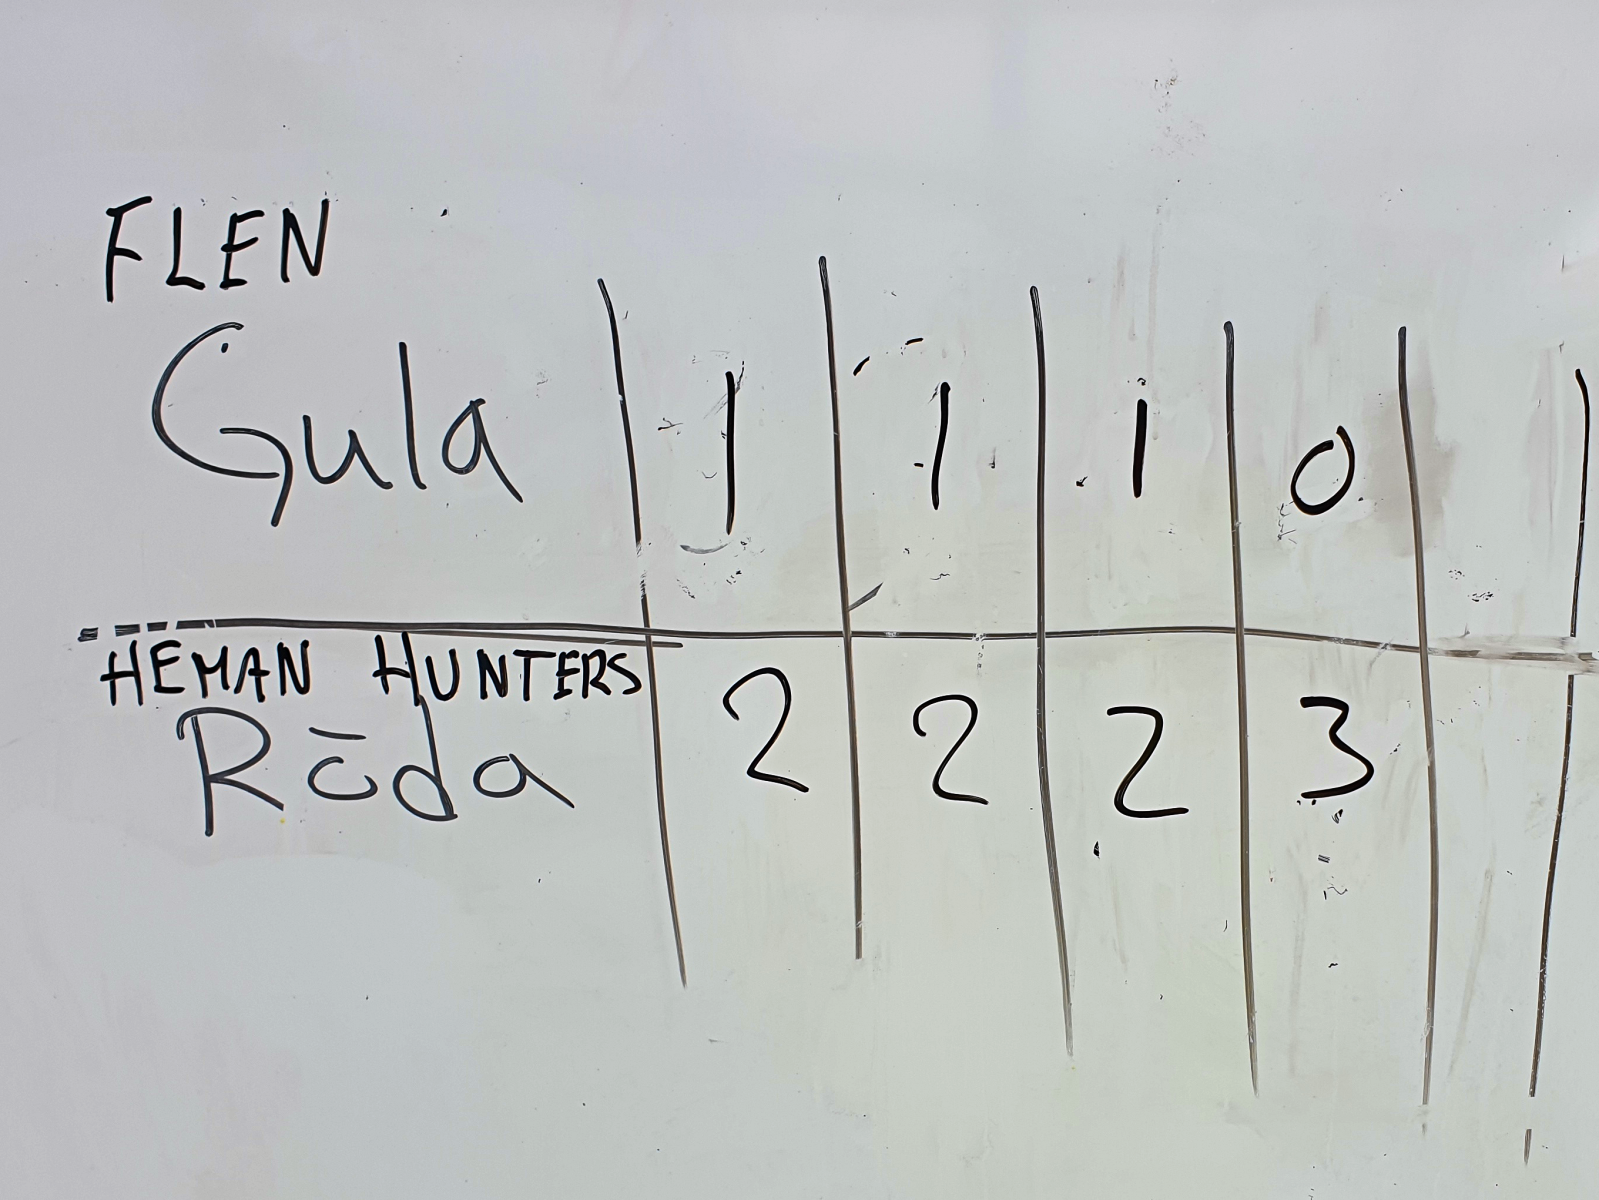 FLEN
Gula 1 1 1 0
HEMAN HUNTERS
Röda 2 2 2 3